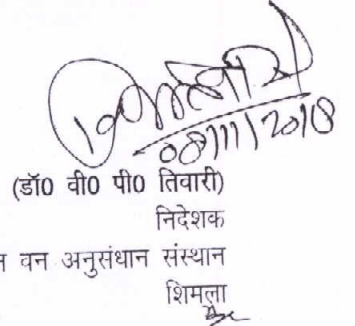 08/11/2018
(डॉ0 वी0 पी0 तिवारी)
निदेशक
वन अनुसंधान संस्थान
शिमला